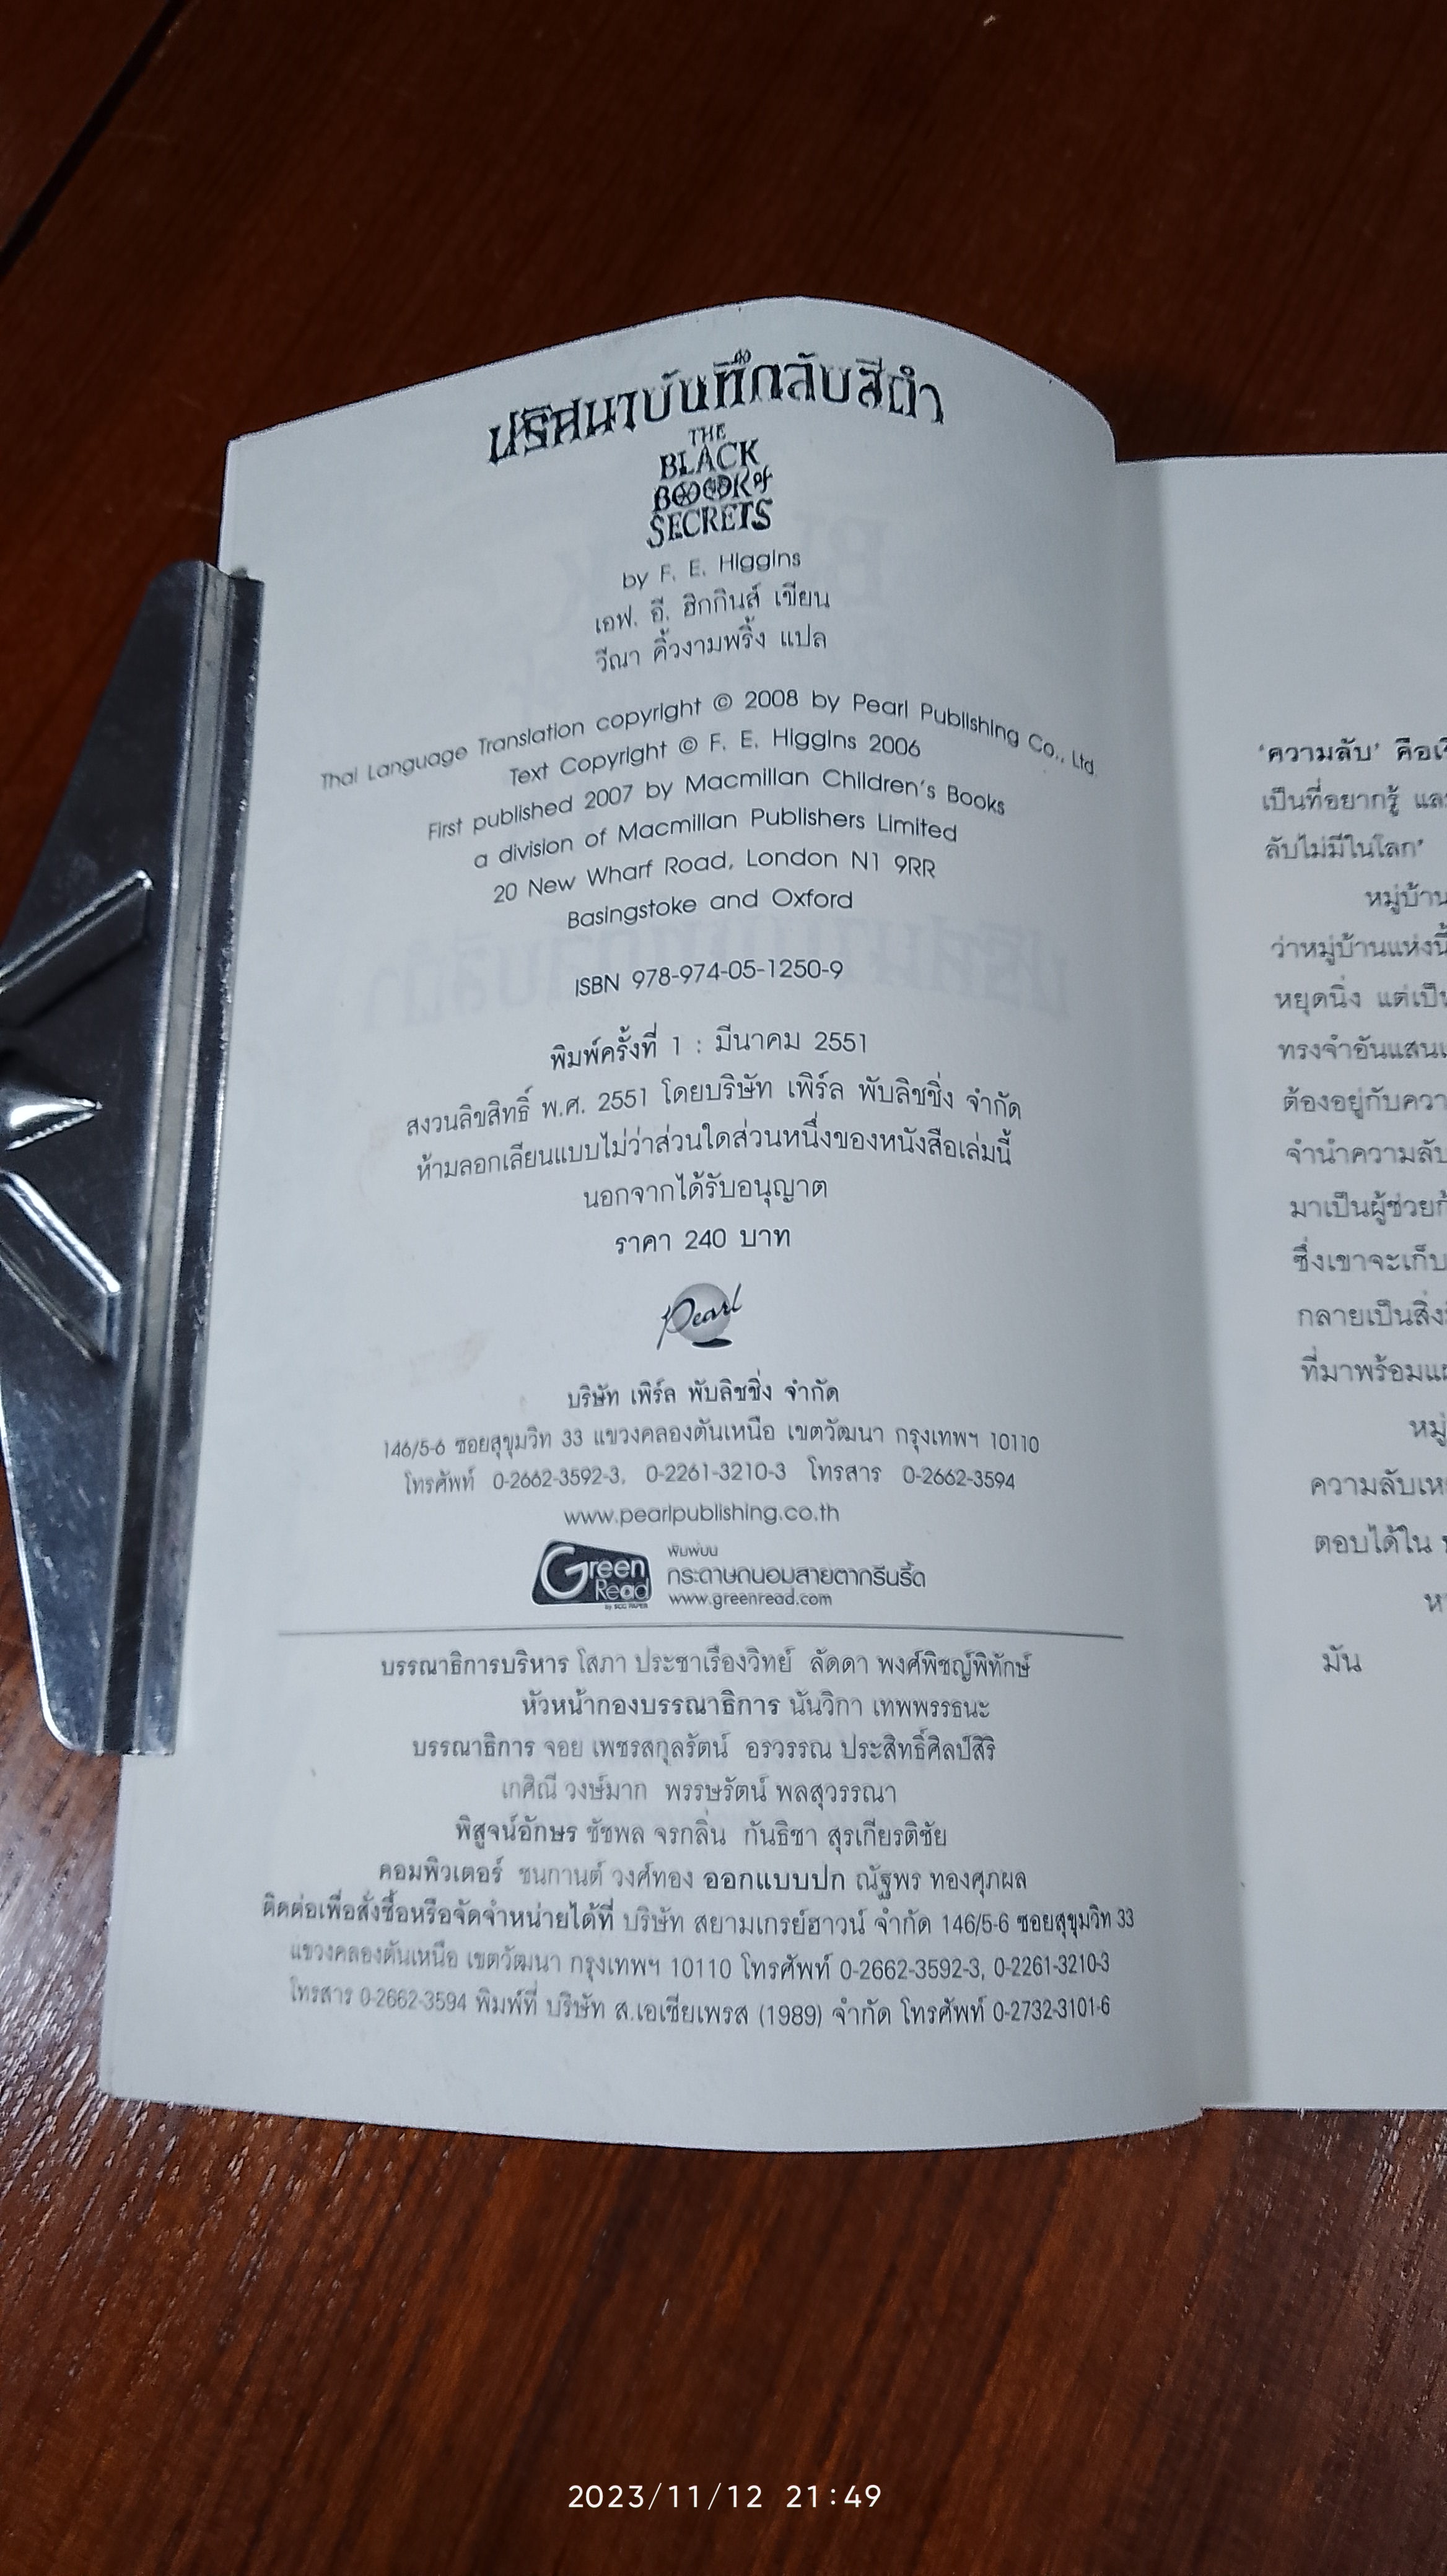 ปริศนาบันทึกลับสีดำ
THE
BLACK
BOOK of
SECRETS
by F. E. Higgins
เอฟ. อี. ฮิกกินส์ เขียน
วีณา คิ้วงามพริ้ง แปล
Thai Language Translation copyright © 2008 by Pearl Publishing Co., Ltd.
Text Copyright © F. E. Higgins 2006
First published 2007 by Macmillan Children's Books
a division of Macmillan Publishers Limited
20 New Wharf Road, London N1 9RR
Basingstoke and Oxford
ISBN 978-974-05-1250-9
พิมพ์ครั้งที่ 1 : มีนาคม 2551
สงวนลิขสิทธิ์ พ.ศ. 2551 โดยบริษัท เพิร์ล พับลิชชิ่ง จำกัด
ห้ามลอกเลียนแบบไม่ว่าส่วนใดส่วนหนึ่งของหนังสือเล่มนี้
นอกจากได้รับอนุญาต
ราคา 240 บาท
Pearl
บริษัท เพิร์ล พับลิชชิ่ง จำกัด
146/5-6 ซอยสุขุมวิท 33 แขวงคลองตันเหนือ เขตวัฒนา กรุงเทพฯ 10110
โทรศัพท์ 0-2662-3592-3, 0-2261-3210-3 โทรสาร 0-2662-3594
www.pearlpublishing.co.th
Green
Read
by SCG PAPER
พิมพ์บน
กระดาษถนอมสายตากรีนรี้ด
www.greenread.com
บรรณาธิการบริหาร โสภา ประชาเรืองวิทย์ ลัดดา พงศ์พิชญ์พิทักษ์
หัวหน้ากองบรรณาธิการ นันวิกา เทพพรรธนะ
บรรณาธิการ จอย เพชรสกุลรัตน์ อรวรรณ ประสิทธิ์ศิลป์สิริ
เกศิณี วงษ์มาก พรรษรัตน์ พลสุวรรณา
พิสูจน์อักษร ชัชพล จรกลิ่น กันธิชา สุรเกียรติชัย
คอมพิวเตอร์ ชนกานต์ วงศ์ทอง ออกแบบปก ณัฐพร ทองศุภผล
ติดต่อเพื่อสั่งซื้อหรือจัดจำหน่ายได้ที่ บริษัท สยามเกรย์ฮาวน์ จำกัด 146/5-6 ซอยสุขุมวิท 33
แขวงคลองตันเหนือ เขตวัฒนา กรุงเทพฯ 10110 โทรศัพท์ 0-2662-3592-3, 0-2261-3210-3
โทรสาร 0-2662-3594 พิมพ์ที่ บริษัท ส.เอเซียเพรส (1989) จำกัด โทรศัพท์ 0-2732-3101-6
'ความลับ' คือ
เป็นที่อยากรู้
ลับไม่มีในโลก'
หมู่บ้าน
ว่าหมู่บ้านแห่งนี้
หยุดนิ่ง แต่เป็น
ทรงจำอันแสน
ต้องอยู่กับ
จำนำความลับ
มาเป็นผู้ช่วย
ซึ่งเขาจะเก็บ
กลายเป็นสิ่ง
ที่มาพร้อม
หมู่
ความลับ
ตอบได้ใน
มัน
2023/11/12 21:49